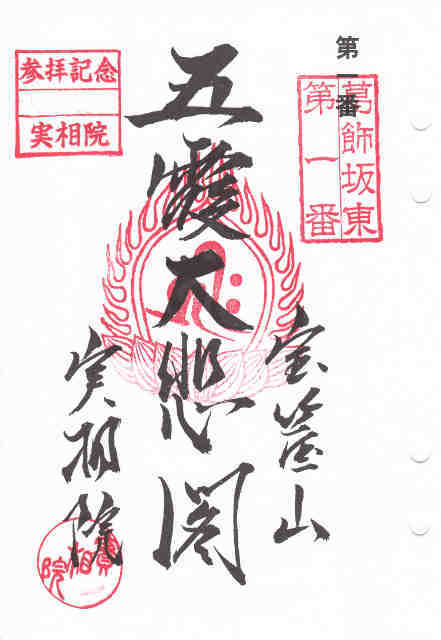 第一番
葛飾坂東
第一番
宝篋山
五霞大悲閣
参拝記念
実相院
実相院
實相院